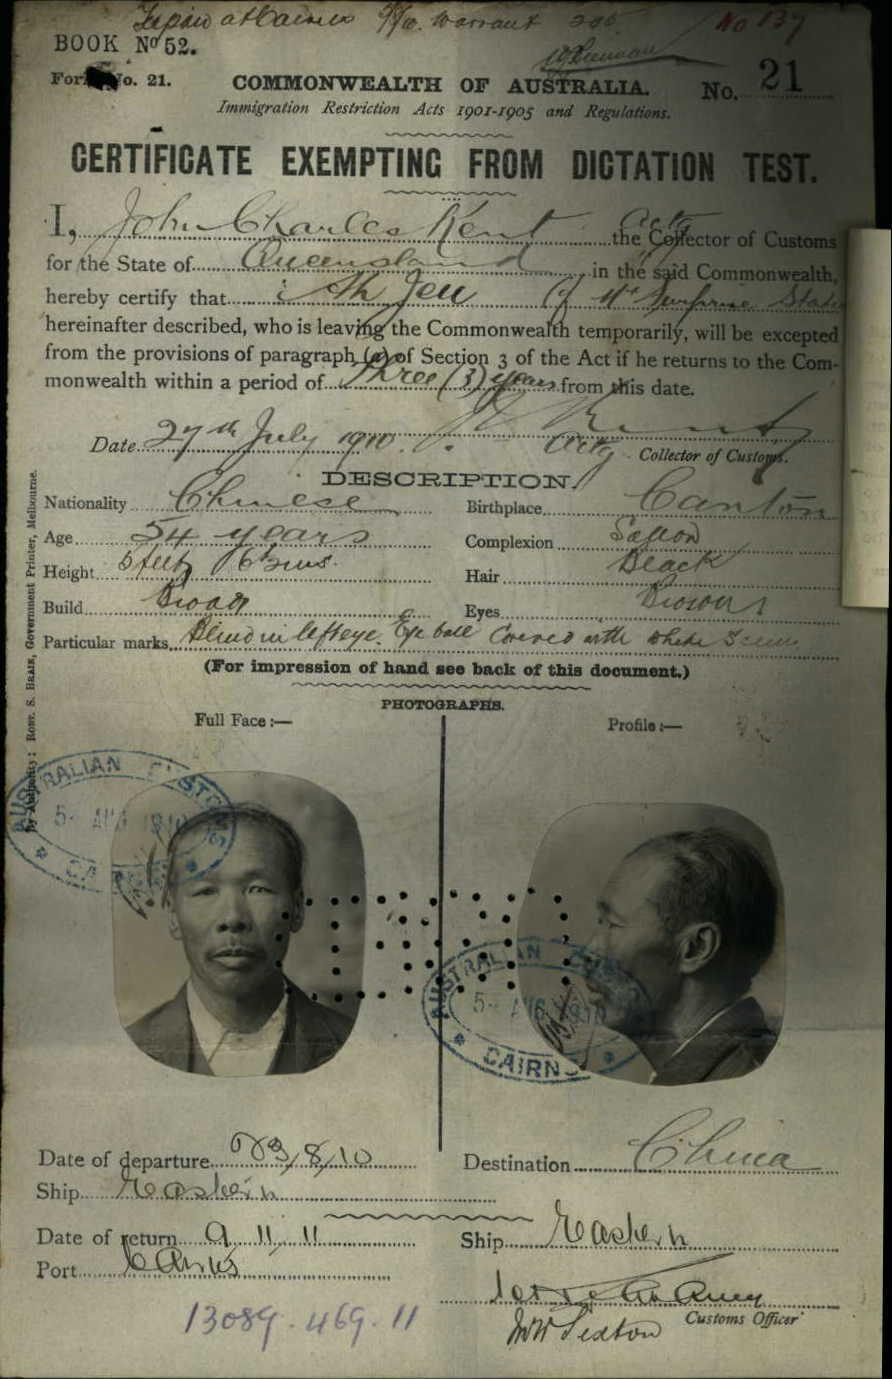 at Cairns Warrant No 137
BOOK No 52.
Form No. 21.
COMMONWEALTH OF AUSTRALIA. No. 21
Immigration Restriction Acts 1901-1905 and Regulations.
CERTIFICATE EXEMPTING FROM DICTATION TEST.
I, John Charles Kent Actg the Collector of Customs
for the State of Queensland in the said Commonwealth,
hereby certify that Ah Jeu of Mt Surprise State
hereinafter described, who is leaving the Commonwealth temporarily, will be excepted
from the provisions of paragraph (a) of Section 3 of the Act if he returns to the Com-
monwealth within a period of three (3) years from this date.
Date 27th July 1910. J C Kent
Actg Collector of Customs.
DESCRIPTION.
Nationality Chinese Birthplace Canton
Age 54 years Complexion Sallow
Height 5 feet Hair Black
Build Broad Eyes Brown
Particular marks Blind in left eye. Eye ball covered with white
(For impression of hand see back of this document.)
PHOTOGRAPHS.
Full Face:— Profile:—
AUSTRALIAN CUSTOMS
5- AUG 1910
CAIRNS
AUSTRALIAN CUSTOMS
5- AUG 1910
CAIRNS
Date of departure 3/8/10 Destination China
Ship Eastern
Date of return 9.11.11 Ship Eastern
Port Cairns
Customs Officer
13089.469.11
By Authority: ROBT. S. BRAIN, Government Printer, Melbourne.